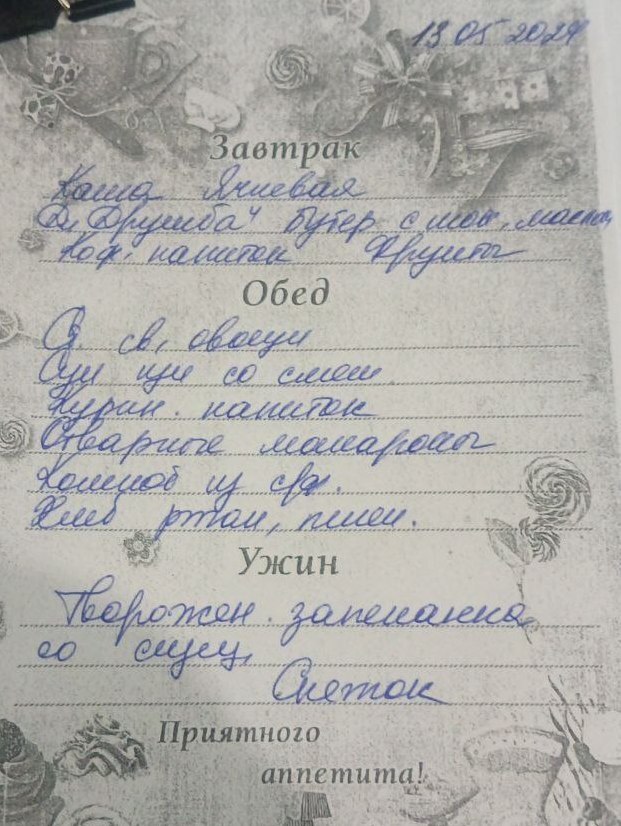 13 05 2024
Завтрак
Каша Ячневая
"Дружба" бутер с шок. маслом
Коф. напиток Фрукты
Обед
св. овощи
Суп щи со смет.
Курин. напиток
Отварные макароны
Компот из сух.
Хлеб ржан, пшен.
Ужин
Творожен. запеканка
со сгущ.
Снежок
Приятного
аппетита!